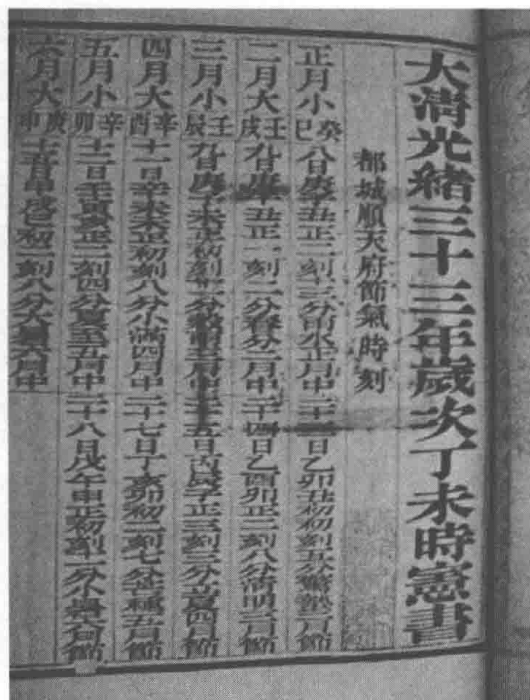 大清光緒三十三年歲次丁未時憲書
都城順天府節氣時刻
正月小癸巳八日庚子丑正二刻十三分雨水正月中二十三日乙卯丑初初刻五分驚蟄二月節
二月大壬戌九日庚午丑正一刻二分春分二月中二十四日乙酉卯正二刻八分清明三月節
三月小壬辰九日庚子未正初刻分穀雨三月中二十五日丙辰子正三刻三分立夏四月節
四月大辛酉十一日辛未未正初刻八分小滿四月中二十七日丁亥卯初二刻七分芒種五月節
五月小辛卯十二日壬寅亥正二刻四分夏至五月中二十八日戊午申正初刻一分小暑六月節
六月大庚申十五日甲戌巳初二刻八分大暑六月中